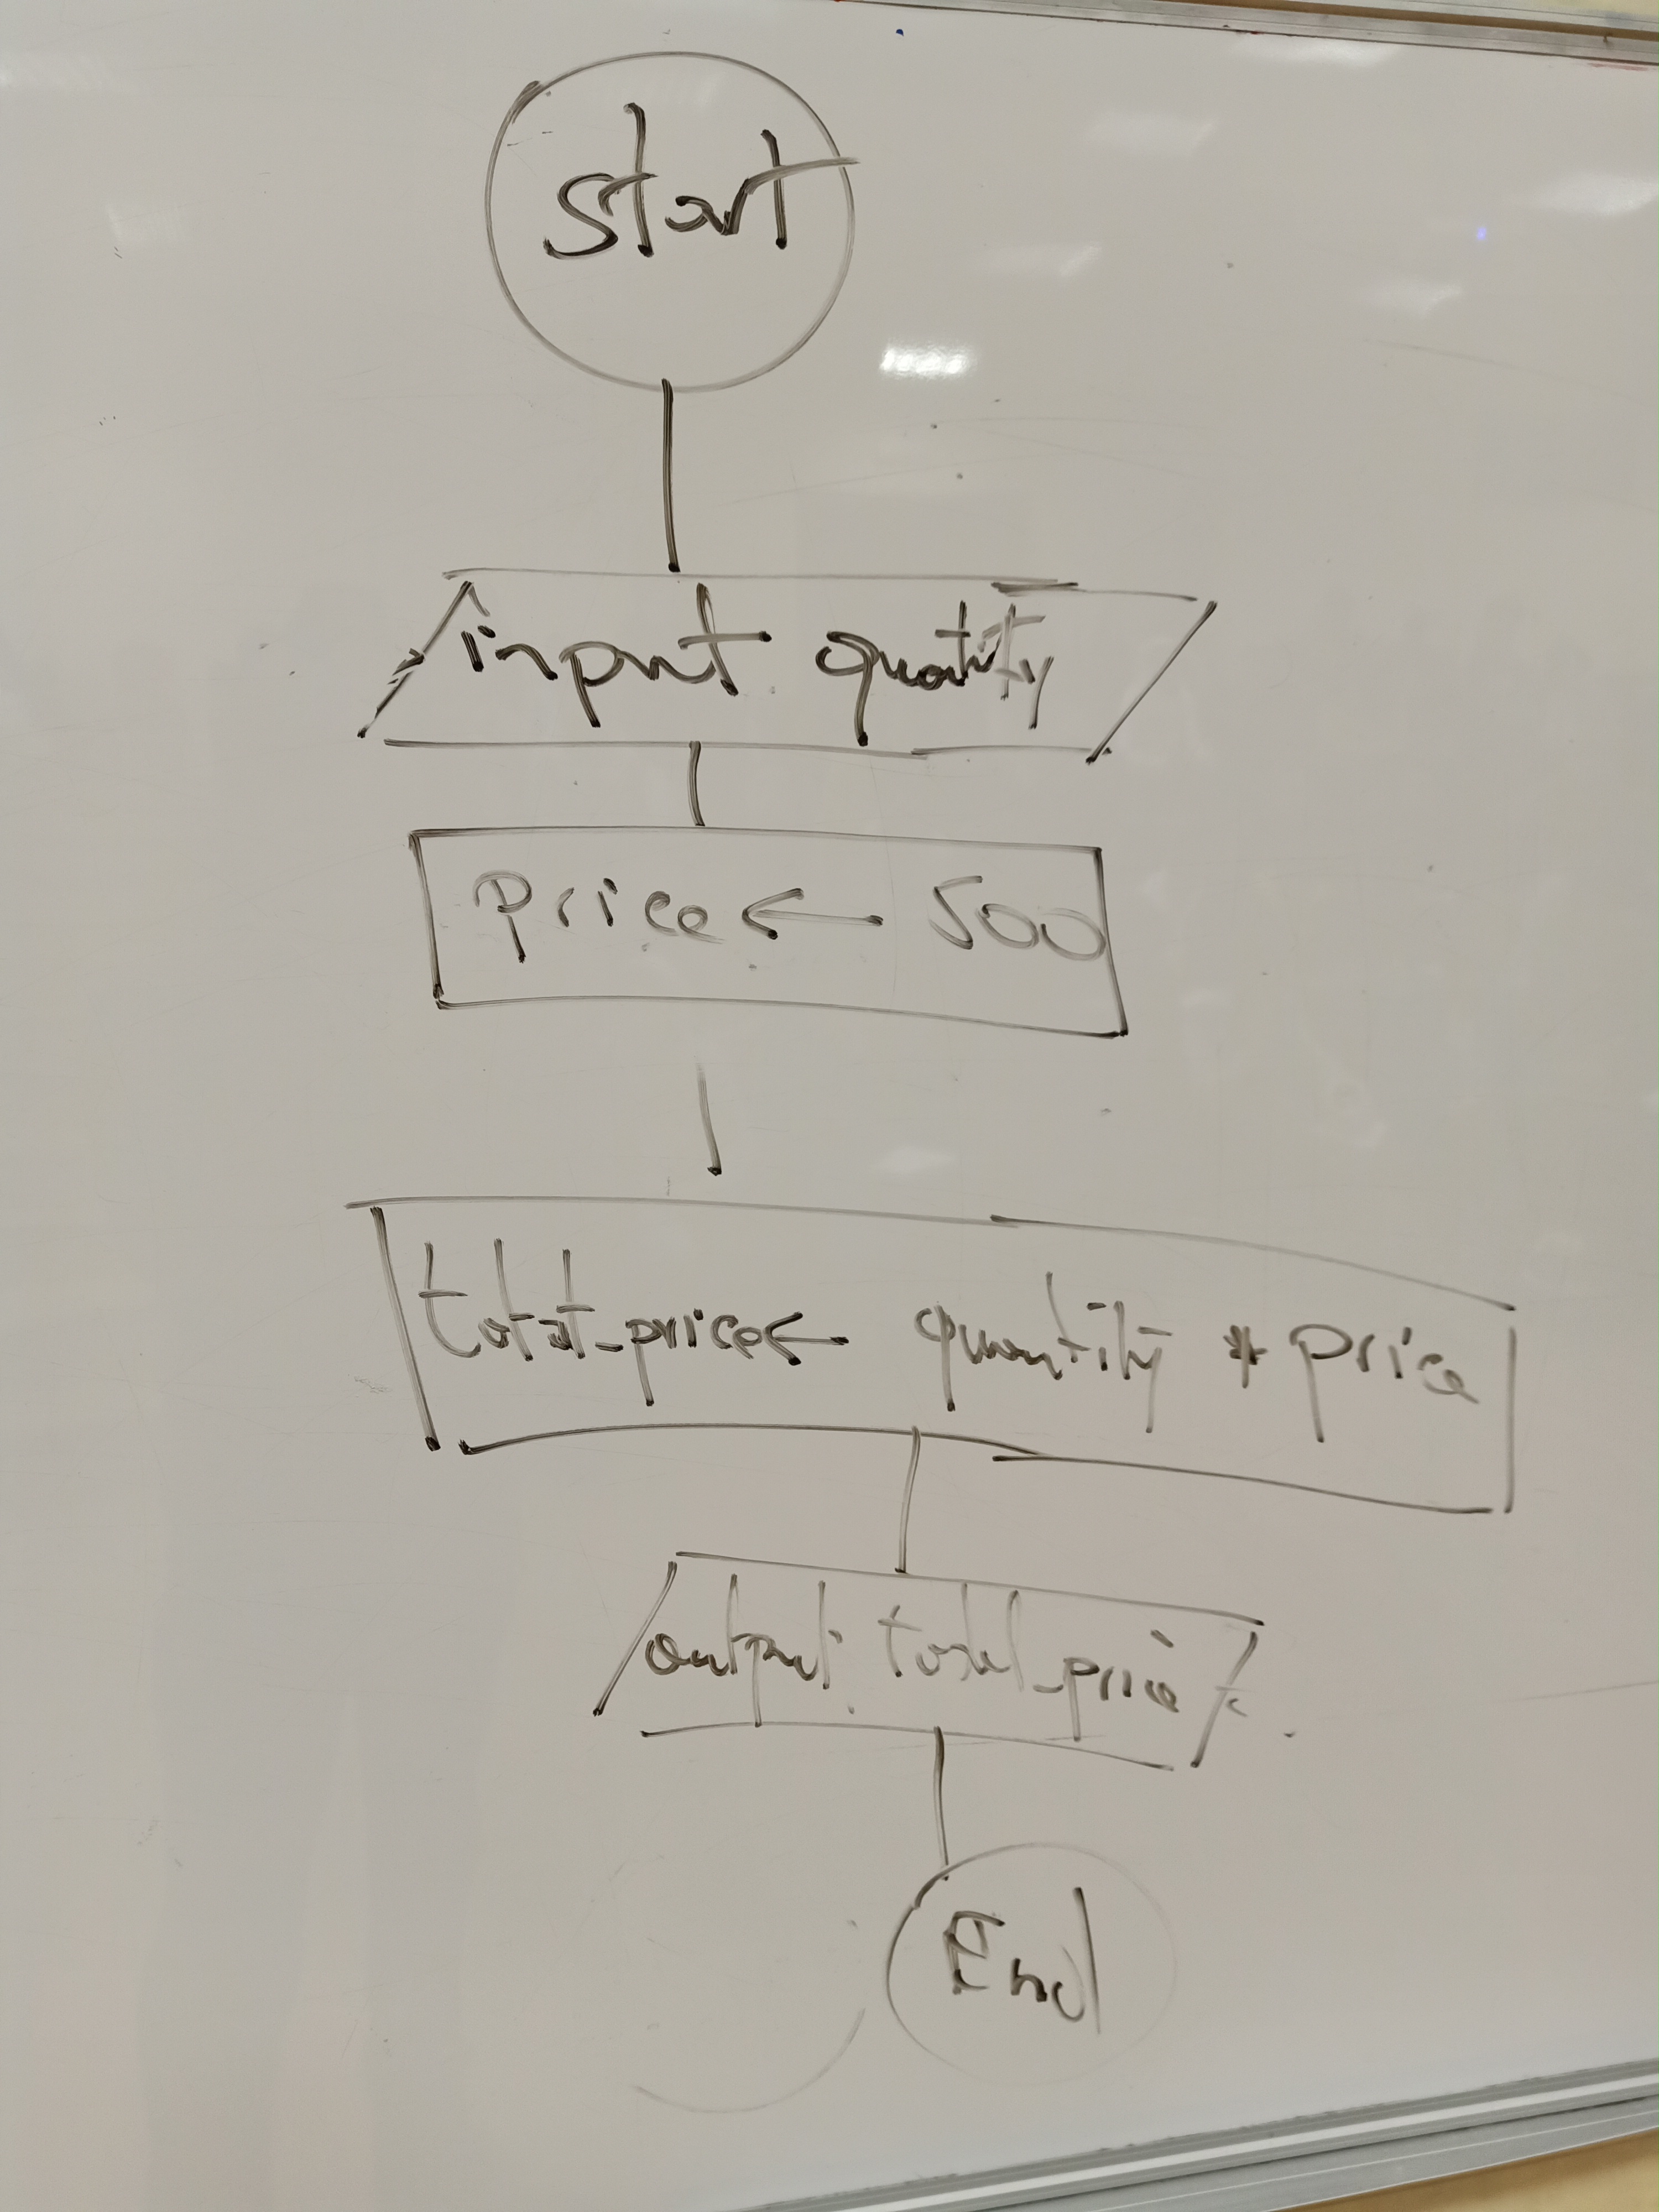 Start
input quatity
Price ← 500
total_price ← quantity * price
output total_price
End